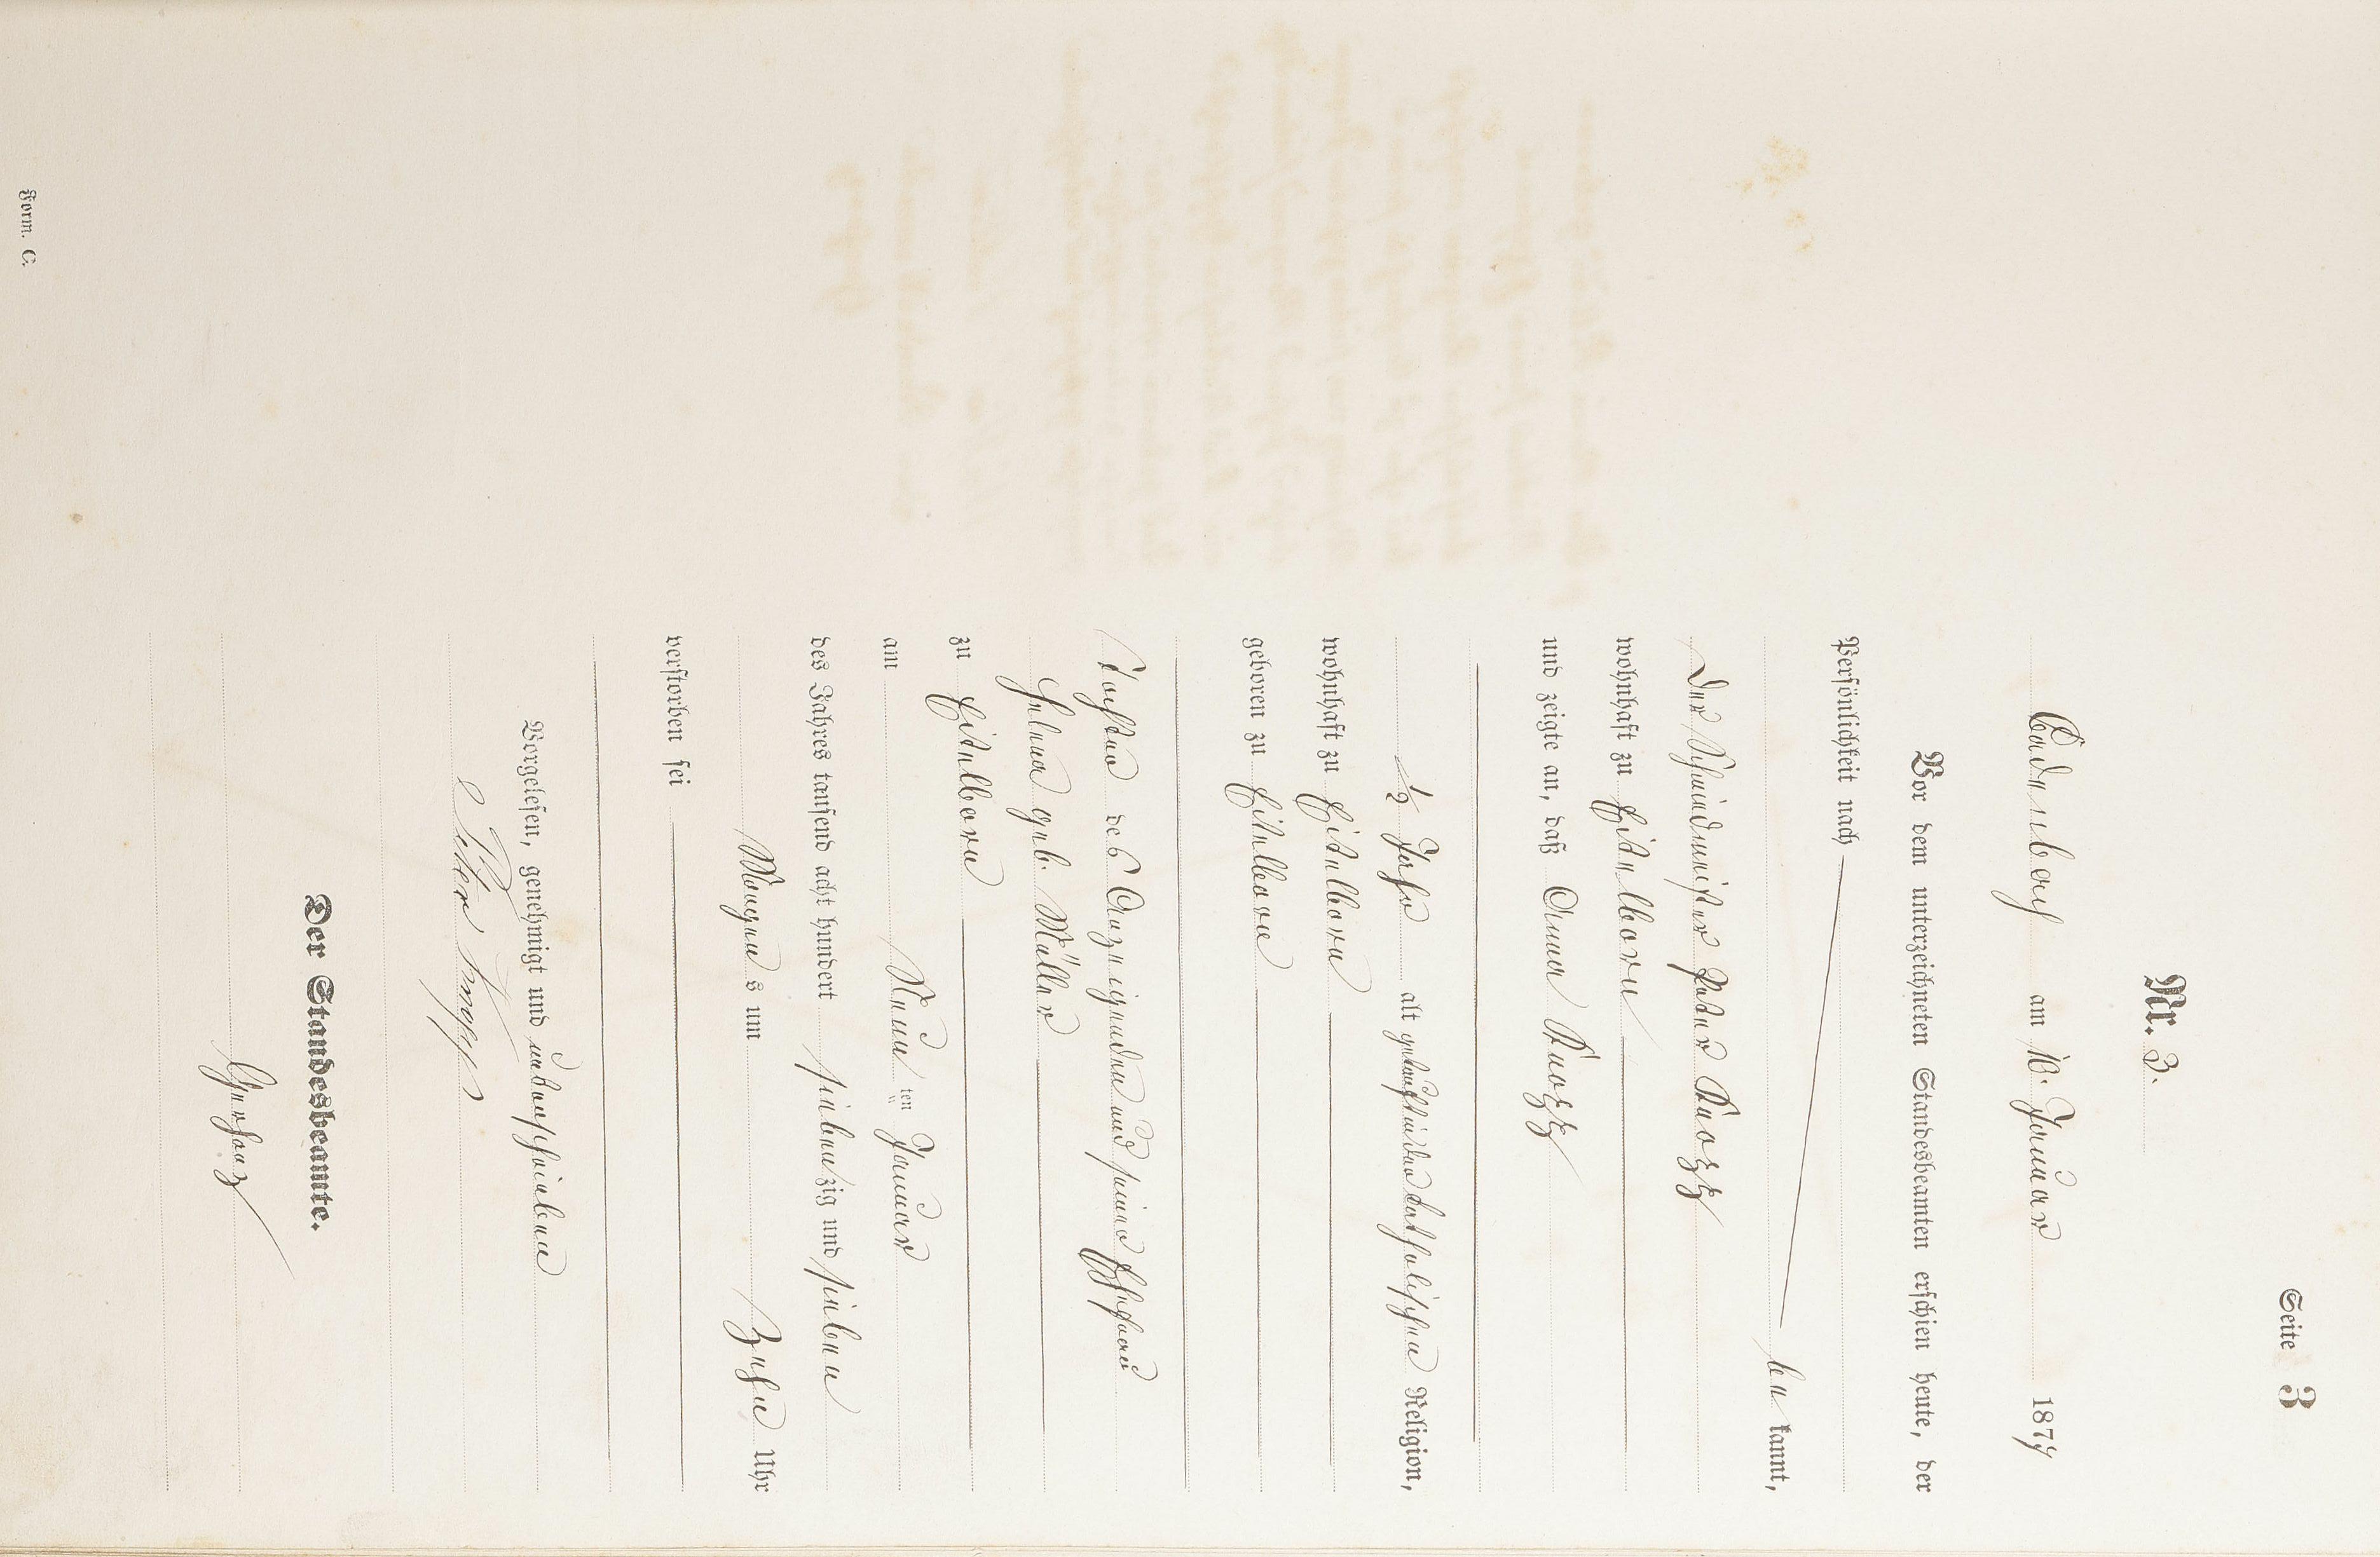 Seite 3
Nr. 3.
Cadenbach am 10. Januar 1877
Vor dem unterzeichneten Standesbeamten erschien heute, der
Persönlichkeit nach
be kannt,
der Schmiedmeister Peter Knopp
wohnhaft zu Eitelborn
und zeigte an, daß Anna Knopp
1/2 Jahr alt katholischen Religion,
wohnhaft zu Eitelborn
geboren zu Eitelborn
Tochter des Anzeigenden und seiner Ehefrau
Helena geb. Müller
zu Eitelborn
am Neun ten Januar
des Jahres tausend acht hundert siebenzig und sieben
Morgen s um Zehn Uhr
verstorben sei
Vorgelesen, genehmigt und unterschrieben
Peter Knopp
Der Standesbeamte.
Form. C.